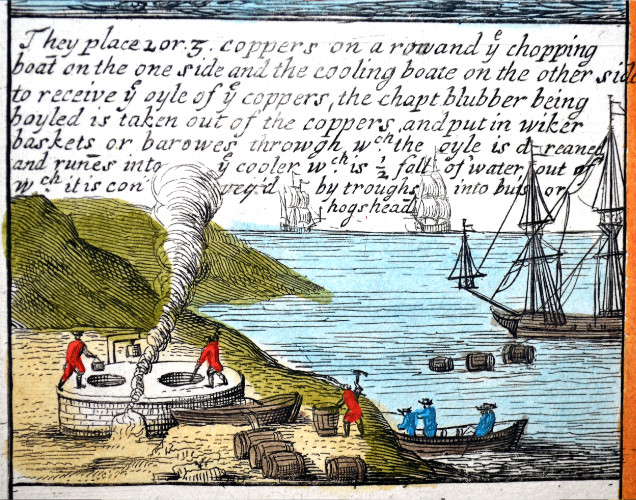 They place 2 or. 3. coppers on a row and yᵉ chopping
boat on the one side and the cooling boate on the other side
to receive yᵉ oyle of yᵉ coppers, the chapt blubber being
boyled is taken out of the coppers, and put in wiker
baskets or barowes throwgh wᶜʰ the oyle is dreaned
and runēs into yᵉ cooler wᶜʰ is ½ full of water, out of
wᶜʰ it is convey'd by troughs into buts or
hogsheads